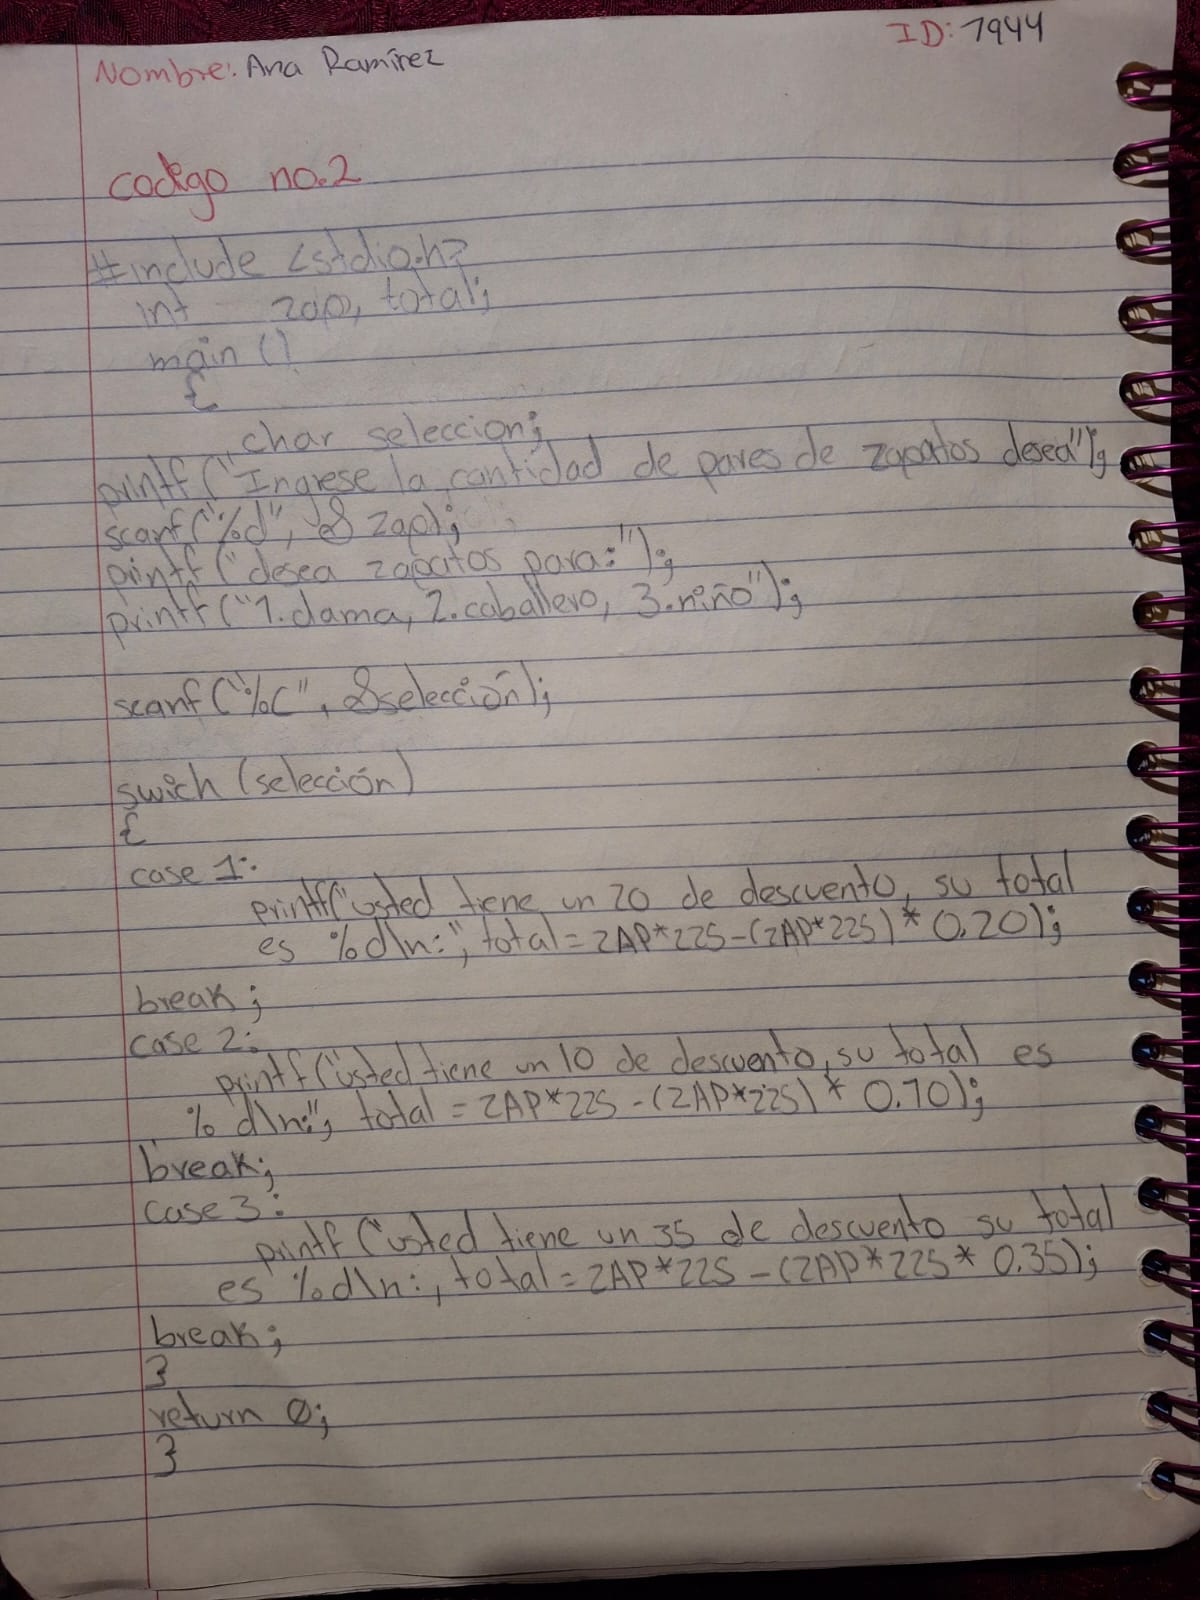 Nombre: Ana Ramírez
ID: 7944
codigo no.2
#include <stdio.h>
int zap, total;
main ()
{
char seleccion;
printf ("Ingrese la cantidad de pares de zapatos desea");
scanf("%d", & zap);
printf ("desea zapatos para:");
printf ("1.dama, 2.caballero, 3.niño");
scanf ("%c", &selección);
swich (selección)
{
case 1:
printf("usted tiene un 20 de descuento, su total
es %d\n:", total = ZAP*225-(ZAP*225) * 0.20);
break;
case 2:
printf ("usted tiene un 10 de descuento, su total es
% d\n:", total = ZAP*225 - (ZAP*225) * 0.10);
break;
case 3:
printf ("usted tiene un 35 de descuento su total
es %d\n:, total = ZAP*225 - (ZAP*225* 0.35);
break;
}
return 0;
}